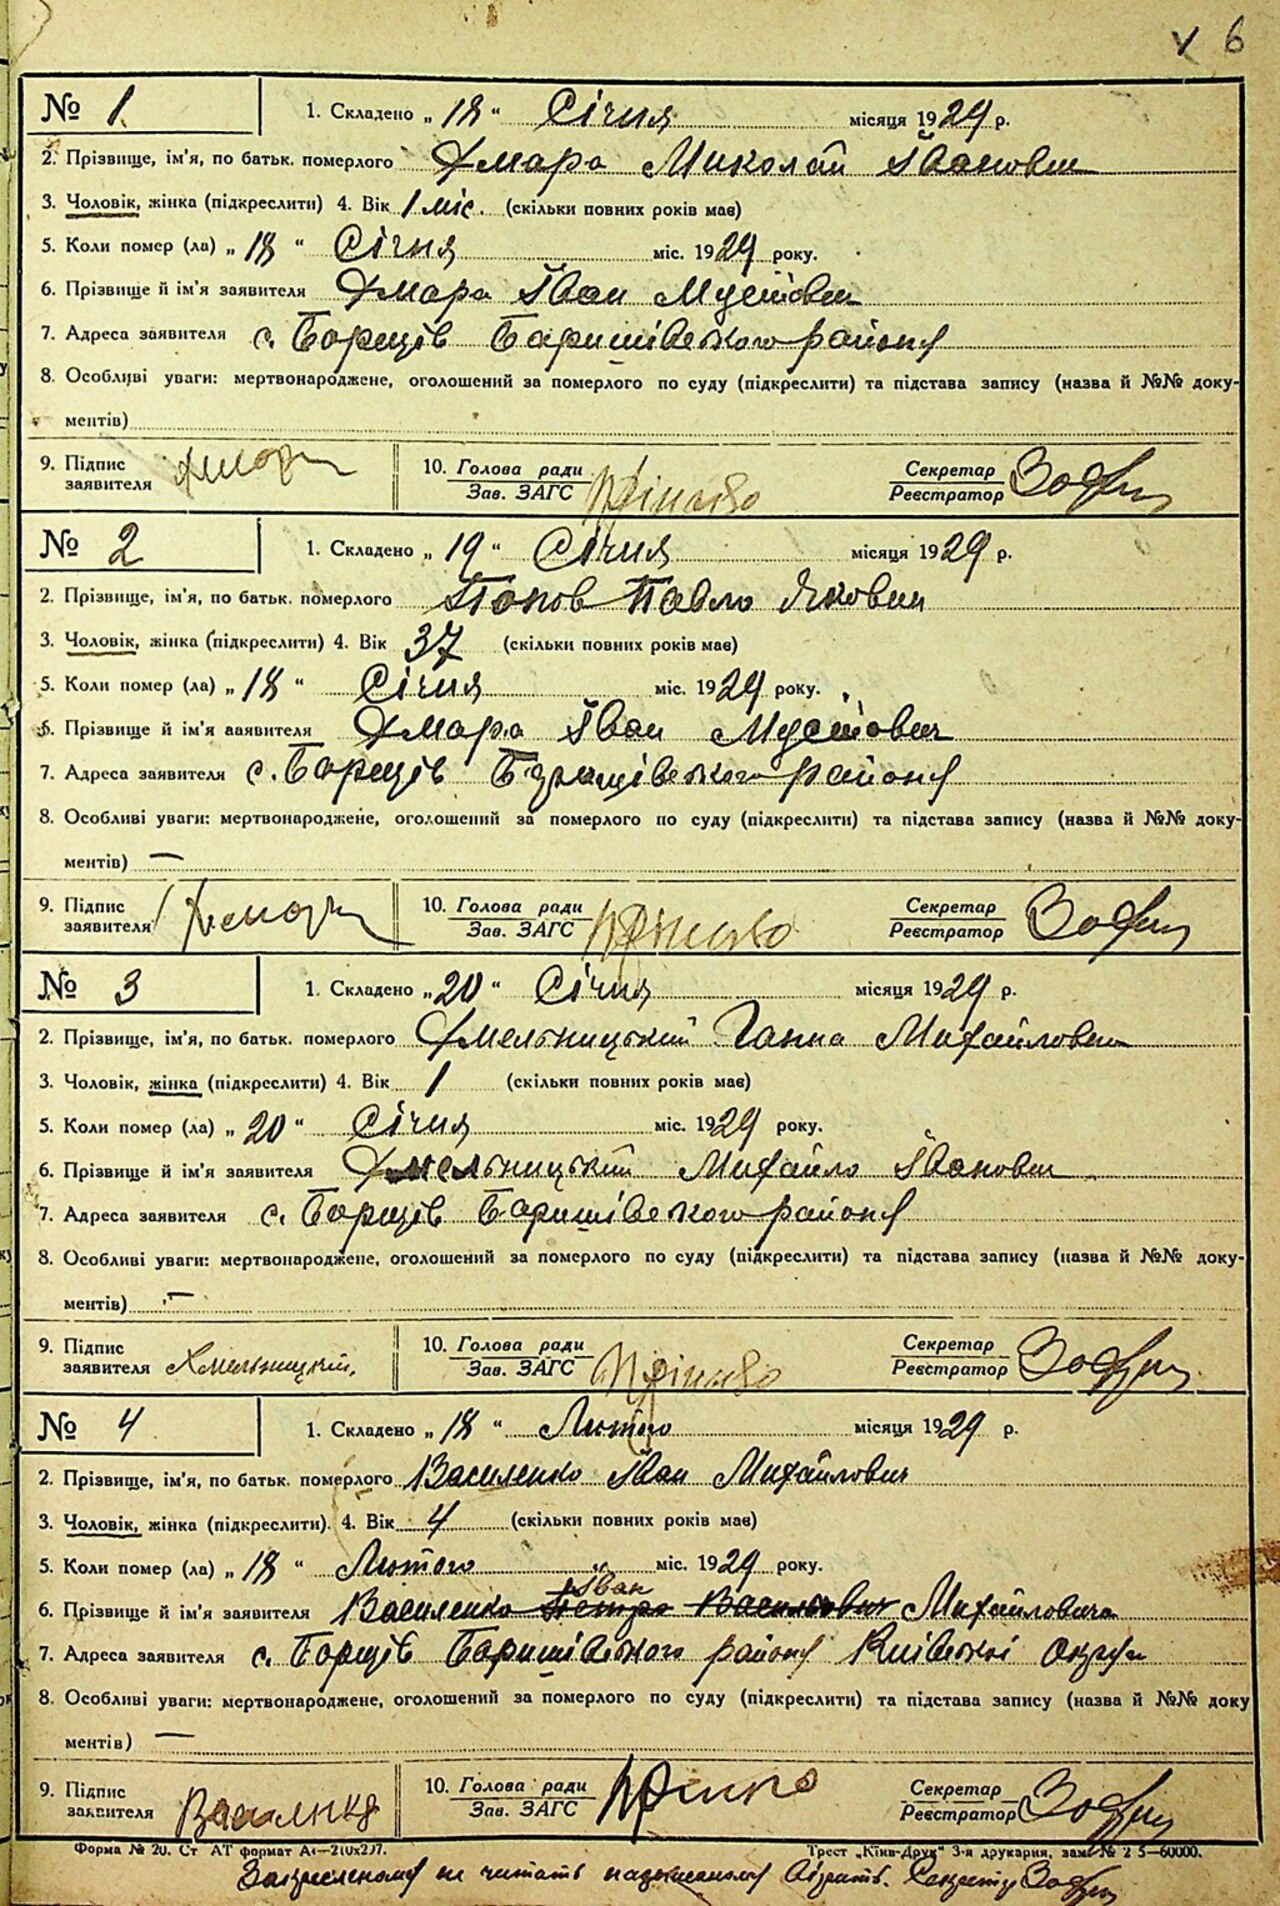 v 6
№ 1. 1. Складено „18“ Січня місяця 1929 р.
2. Прізвище, ім'я, по батьк. померлого Хмара Миколай Іванович
3. Чоловік, жінка (підкреслити) 4. Вік 1 міс. (скільки повних років має)
5. Коли помер (ла) „18“ Січня міс. 1929 року.
6. Прізвище й ім'я заявителя Хмара Іван Мусійович
7. Адреса заявителя с. Борщів Баришівського району
8. Особливі уваги: мертвонароджене, оголошений за померлого по суду (підкреслити) та підстава запису (назва й №№ доку-
ментів)
9. Підпис заявителя Хмара 10. Голова ради Зав. ЗАГС Секретар Реєстратор
№ 2 1. Складено „19“ Січня місяця 1929 р.
2. Прізвище, ім'я, по батьк. померлого Попов Павло Якович
3. Чоловік, жінка (підкреслити) 4. Вік 37 (скільки повних років має)
5. Коли помер (ла) „18“ Січня міс. 1929 року.
6. Прізвище й ім'я заявителя Хмара Іван Мусійович
7. Адреса заявителя с. Борщів Баришівського району
8. Особливі уваги: мертвонароджене, оголошений за померлого по суду (підкреслити) та підстава запису (назва й №№ доку-
ментів) —
9. Підпис заявителя Хмара 10. Голова ради Зав. ЗАГС Секретар Реєстратор
№ 3 1. Складено „20“ Січня місяця 1929 р.
2. Прізвище, ім'я, по батьк. померлого Хмельницький Ганна Михайлович
3. Чоловік, жінка (підкреслити) 4. Вік 1 (скільки повних років має)
5. Коли помер (ла) „20“ Січня міс. 1929 року.
6. Прізвище й ім'я заявителя Хмельницький Михайло Іванович
7. Адреса заявителя с. Борщів Баришівського району
8. Особливі уваги: мертвонароджене, оголошений за померлого по суду (підкреслити) та підстава запису (назва й №№ доку-
ментів) —
9. Підпис заявителя Хмельницкий. 10. Голова ради Зав. ЗАГС Секретар Реєстратор
№ 4 1. Складено „18“ Лютого місяця 1929 р.
2. Прізвище, ім'я, по батьк. померлого Василенко Іван Михайлович
3. Чоловік, жінка (підкреслити). 4. Вік 4 (скільки повних років має)
5. Коли помер (ла) „18“ Лютого міс. 1929 року.
Іван
6. Прізвище й ім'я заявителя Василенко Петро Васильович Михайловича
7. Адреса заявителя с. Борщів Баришівського району Київські округи
8. Особливі уваги: мертвонароджене, оголошений за померлого по суду (підкреслити) та підстава запису (назва й №№ доку
ментів) —
9. Підпис заявителя Василенко 10. Голова ради Зав. ЗАГС Секретар Реєстратор
Форма № 20. Ст АТ формат А4—210х297. Трест „Київ-Друк“ 3-я друкарня, зам. № 2 5—60000.
Закресленому не читать надписаному вірить. Секретар